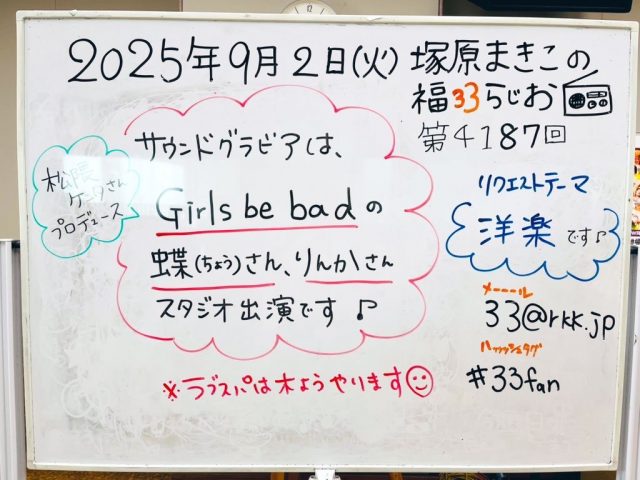 2025年9月2日(火) 塚原まきこの
福33らじお
第4187回
松隈
ケータさん
プロデュース
サウンドグラビアは、
Girls be bad の
蝶(ちょう)さん、りんかさん
スタジオ出演です♪
リクエストテーマ
洋楽です♪
メーーール
33@rkk.jp
ハッッシュタグ
#33fan
※ラブスパは木ようやります☺